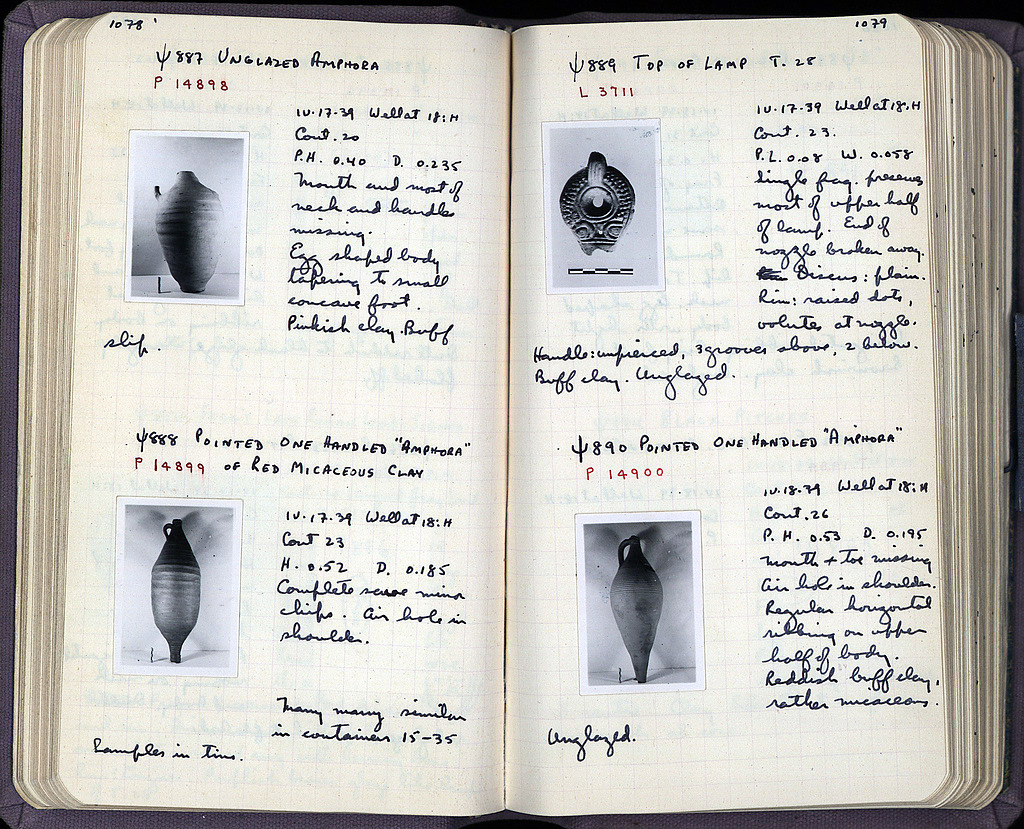 1078
Ψ887 UNGLAZED AMPHORA
P 14898
IV-17-39 Well at 18:H
Cont. 20
P.H. 0.40 D. 0.235
Mouth and most of
neck and handles
missing.
Egg shaped body
tapering to small
concave foot.
Pinkish clay. Buff
slip.
Ψ888 POINTED ONE HANDLED "AMPHORA"
P 14899 OF RED MICACEOUS CLAY
IV-17-39 Well at 18:H
Cont 23
H. 0.52 D. 0.185
Complete save minor
chips. Air hole in
shoulder.
Many many similar
in containers 15-35
Samples in tins.
1079
Ψ889 TOP OF LAMP T. 28
L 3711
IV-17-39 Well at 18:H
Cont. 23.
P.L. 0.08 W. 0.058
Single frag. preserves
most of upper half
of lamp. End of
nozzle broken away.
Discus: plain.
Rim: raised dots,
volutes at nozzle.
Handle: unpierced, 3 grooves above, 2 below.
Buff clay. Unglazed.
Ψ890 POINTED ONE HANDLED "AMPHORA"
P 14900
IV-18-39 Well at 18:H
Cont. 26
P. H. 0.53 D. 0.195
Mouth + toe missing
Air hole in shoulder.
Regular horizontal
ribbing on upper
half of body.
Reddish buff clay,
rather micaceous.
Unglazed.